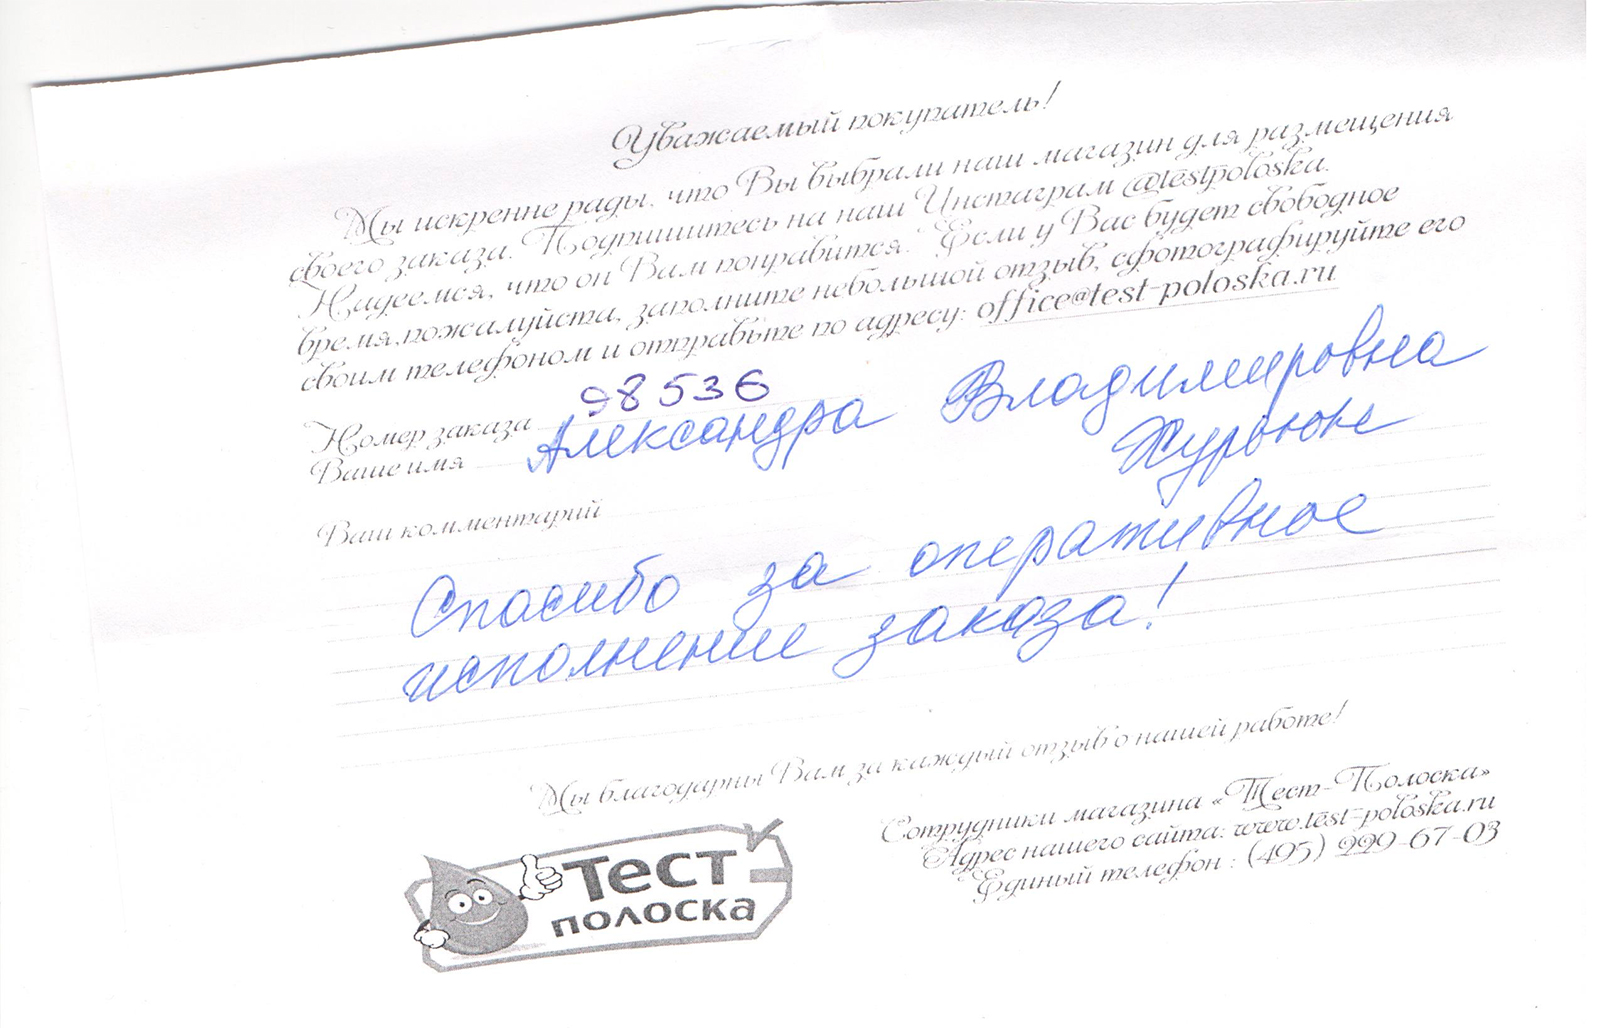 Уважаемый покупатель!
Мы искренне рады, что Вы выбрали наш магазин для размещения
своего заказа. Подпишитесь на наш Инстаграм @testpoloska.
Надеемся, что он Вам понравится. Если у Вас будет свободное
время, пожалуйста, заполните небольшой отзыв, сфотографируйте его
своим телефоном и отправьте по адресу: office@test-poloska.ru
Номер заказа 98536
Ваше имя Александра Владимировна
Ваш комментарий
Спасибо за оперативное
исполнение заказа!
Мы благодарны Вам за каждый отзыв о нашей работе!
Сотрудники магазина «Тест-Полоска»
Адрес нашего сайта: www.test-poloska.ru
Единый телефон : (495) 229-67-03
Тест
полоска